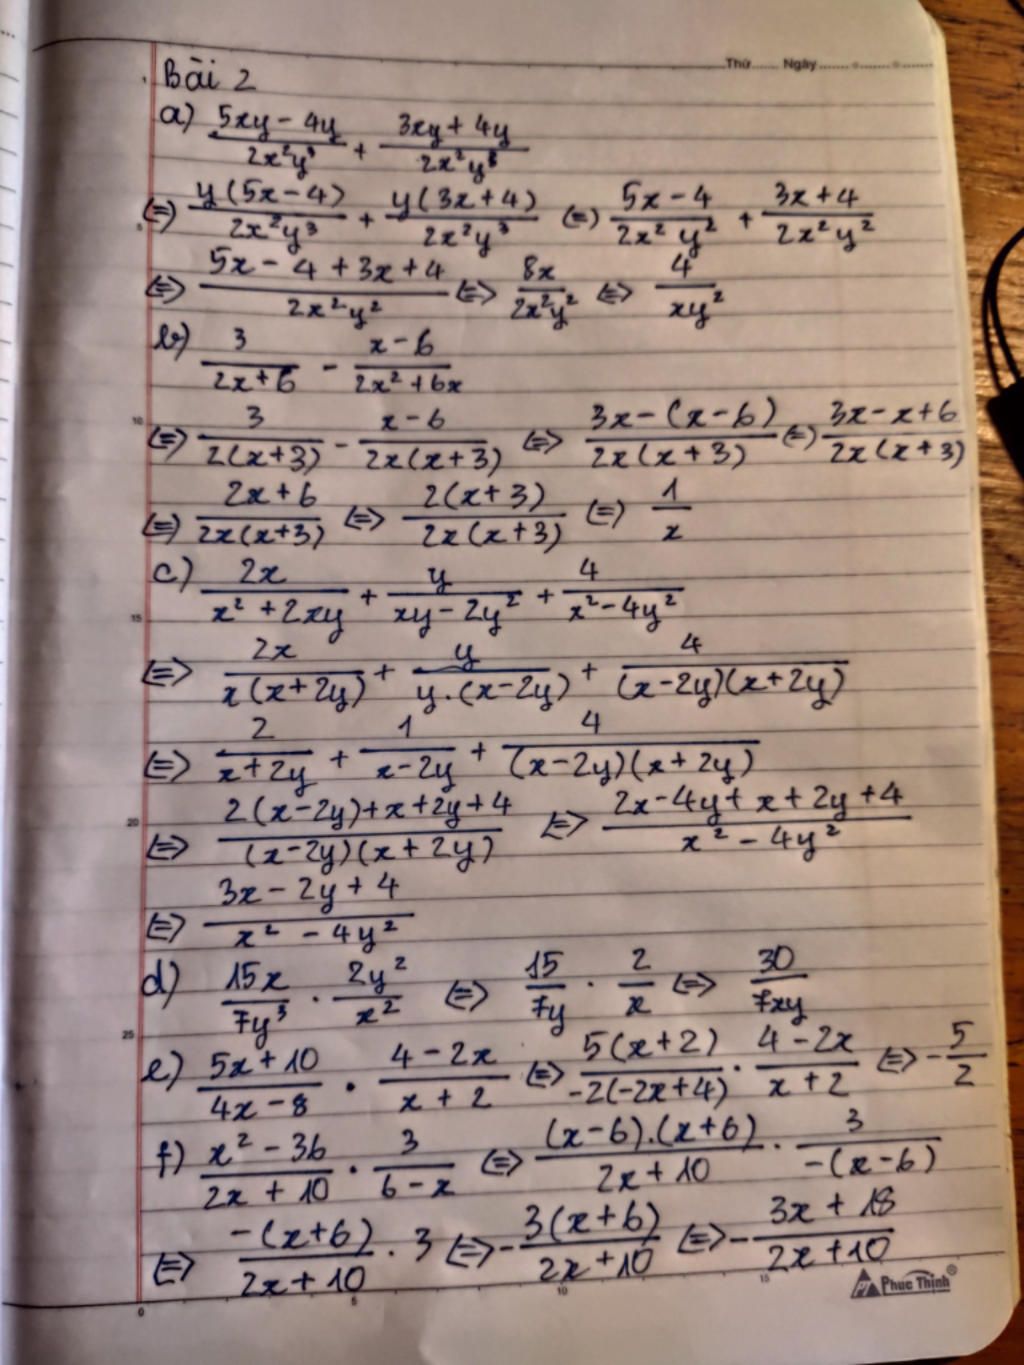 Thứ...... Ngày.......o.......o.......
Bài 2
a) (5xy - 4y)/(2x²y³) + (3xy + 4y)/(2x²y³)
(=) y(5x - 4)/(2x²y³) + y(3x + 4)/(2x²y³) (=) (5x - 4)/(2x² y²) + (3x + 4)/(2x² y²)
<=> (5x - 4 + 3x + 4)/(2x² y²) <=> 8x/(2x²y²) <=> 4/(xy²)
b) 3/(2x + 6) - (x - 6)/(2x² + 6x)
<=> 3/(2(x + 3)) - (x - 6)/(2x(x + 3)) <=> (3x - (x - 6))/(2x(x + 3)) <=> (3x - x + 6)/(2x(x + 3))
<=> (2x + 6)/(2x(x + 3)) <=> 2(x + 3)/(2x(x + 3)) (=) 1/x
c) 2x/(x² + 2xy) + y/(xy - 2y²) + 4/(x² - 4y²)
<=> 2x/(x(x + 2y)) + y/(y.(x - 2y)) + 4/((x - 2y)(x + 2y))
<=> 2/(x + 2y) + 1/(x - 2y) + 4/((x - 2y)(x + 2y))
<=> (2(x - 2y) + x + 2y + 4)/((x - 2y)(x + 2y)) <=> (2x - 4y + x + 2y + 4)/(x² - 4y²)
<=> (3x - 2y + 4)/(x² - 4y²)
d) 15x/(7y³) . 2y²/x² <=> 15/(7y) . 2/x <=> 30/(7xy)
e) (5x + 10)/(4x - 8) . (4 - 2x)/(x + 2) <=> 5(x + 2)/(-2(-2x + 4)) . (4 - 2x)/(x + 2) <=> -5/2
f) (x² - 36)/(2x + 10) . 3/(6 - x) <=> (x - 6).(x + 6)/(2x + 10) . 3/(-(x - 6))
<=> -(x + 6)/(2x + 10) . 3 <=> - 3(x + 6)/(2x + 10) <=> - (3x + 18)/(2x + 10)
Phuc Thinh®